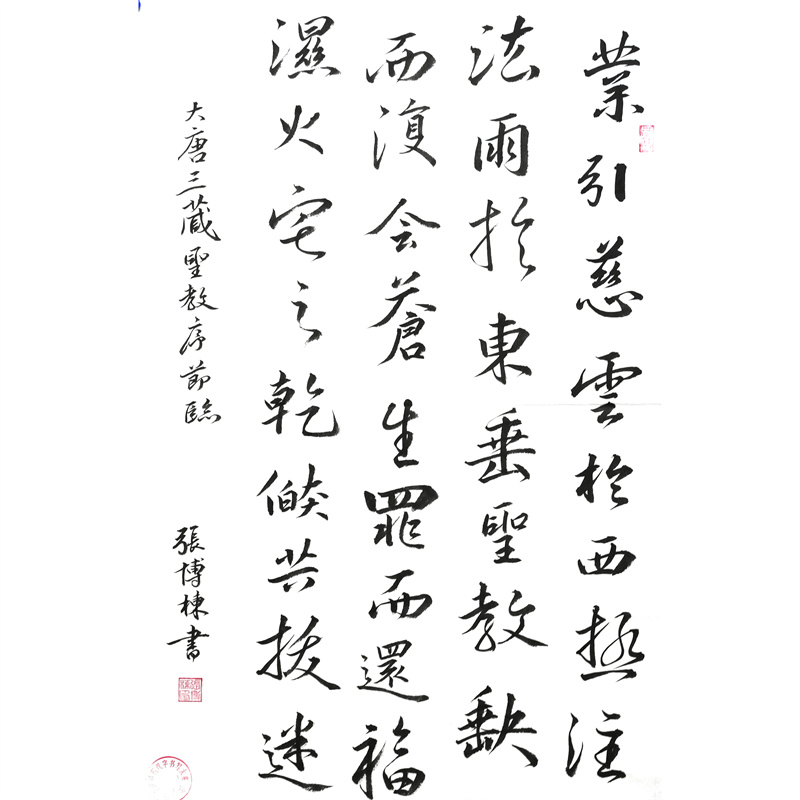 業引慈雲於西極注
法雨於東垂聖教缺
而復全蒼生罪而還福
濕火宅之乾焰共拔迷
大唐三藏聖教序節臨
張博棟書